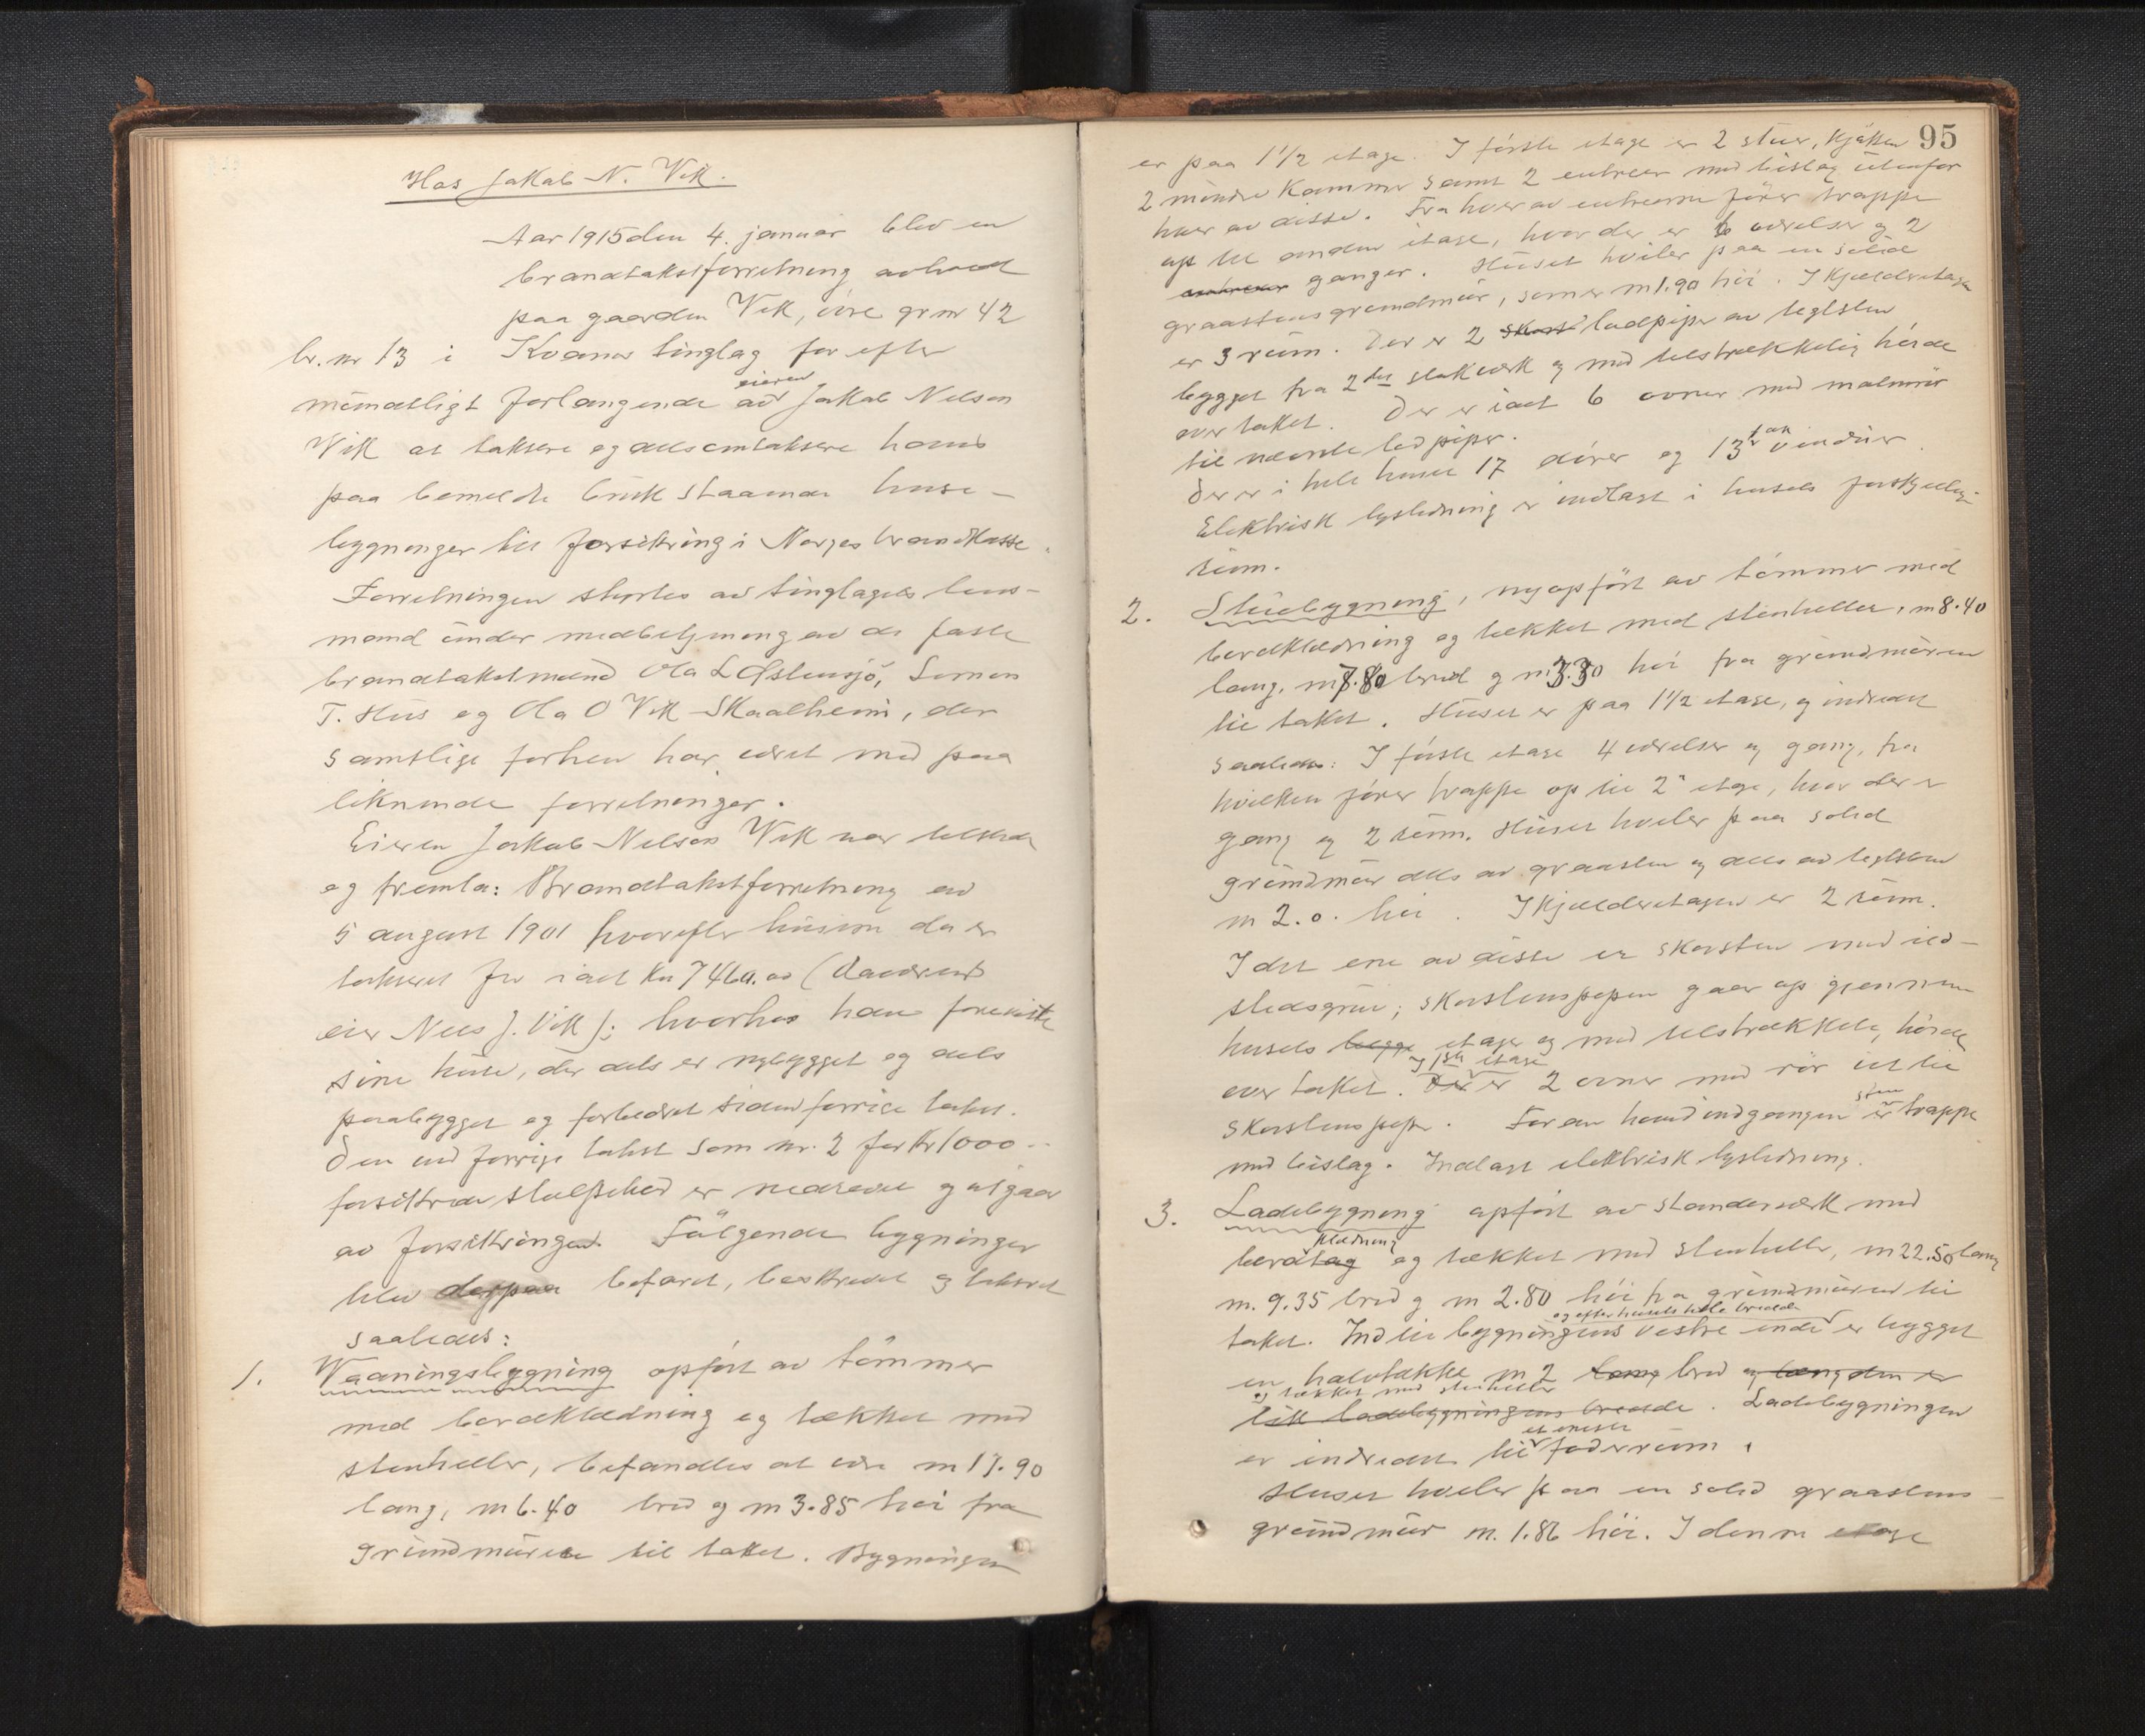 Hos Jakob N. Vik.
Aar 1915 den 4. januar blev en
brandtakstforretning avholdt
paa gaarden Vik, övre gr nr 42
br. nr 13 i Kvamsø tinglag for efter
mündtligt forlangende av eieren Jakob Nelson
Vik at taksere og dels omtaksere hans
paa bemeldte bruk staaende huse-
bygninger til forsikring i Norges brandkasse.
Forretningen styrtes av tinglagets lens-
mand ünder medbetjening av de faste
brandtakstmænd Ola L Østensjö, Simon
T. Hüs og Ola O Vik Skaalheim, der
samtlige forhen har været med paa
liknende forretninger.
Eieren Jakob Nelson Vik var tilstede
og fremla: Brandtakstforretning av
5 august 1901 hvorefter hüsene da er
takseret for i alt kr 7460.00 (daværende
eier Nels J. Vik); hvorhos han foreviste
sine hüse, der dels er nybygget og dels
paabygget og forbedret siden forrige takst.
Den ved forrige takst som nr. 2 for Kr 1000 --
forsikrede er nedrevet og utgaar
av forsikringen. Fölgende bygninger
blev derpaa befaret, beskrevet og takseret
saaledes:
1. Vaaningsbygning opfört av tömmer
med bordklædning og tækket med
stenheller, befandtes at være m 17.90
lang, m 6.40 bred og m 3.85 höi fra
gründmüren til taket. Bygningen
95
er paa 1 1/2 etage. I förste etage er 2 stuer, kjökken
2 mindre kammer samt 2 entreer med bislag ütenfor
hver av disse. Fra hver av entreerne förer trappe
op til anden etage, hvor der er 6 værelser og 2
entreer ganger. Hüset hviler paa en solid
graastens gründmür, som er m 1.90 höi. I kjælderetagen
er 3 rüm. Der er 2 skorst ladpiper av teglsten
bygget fra 2det stokværk og med tilstrækkelig höide
over taket. Der er i alt 6 ovner med
til nævnte ladpiper.
Der er i hele huset 17 dörer og 13 fak vindüer.
Elektrisk lysledning er indlagt i husets forskjellige
rüm.
2. Stüebygning, nyopfört av tömmer med
bordklædning og tækket med stenheller, m 8.40
lang, m 7.80 bred og m 3.30 höi fra gründmüren
til taket. Hüset er paa 1 1/2 etage, og indredet
saaledes: I förste etage 4 værelser og gang, fra
hvilken förer trappe op til 2" etage, hvor der er
gang og 2 rüm. Hüset hviler paa solid
gründmür dels av graasten og dels av teglsten
m 2.0. höi. I kjælderetagen er 2 rüm.
I det ene av disse er skorsten med ild-
stedsgrüe; skorstenspipen gaar op gjennem
husets begge etager og med tilstrækkelig höide
over taket. I 1ste etage Der er 2 ovner med rör ut til
skorstenspipe. Foran hovedindgangen er sten trappe
med bislag. Indlagt elektrisk lysledning.
3. Ladebygning opfört av standerværk med
bordtag klædning og tækket med stenheller, m 22.50 lang
m. 9.35 bred og m 2.80 höi fra gründmüren til
taket. Ind til bygningens vestre ende og efter husets hele bredde er bygget
en halvtække m 2 lang bred og længden er
og tækket med stenheller lik ladebygningens bredde. Ladebygningen
er indredet til foderrüm.
Huset hviler paa en solid graastens-
gründmür m. 1.86 höi. I denne etage